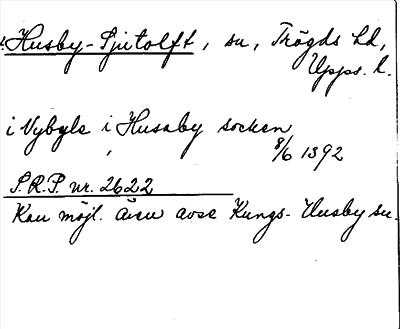 Husby-Sjutolft, sn, Trögds hd,
Upps. l.
i Vybyle i Husaby socken
8/6 1392
S.R.P. nr. 2622
Kan möjl. även avse Kungs-Husby sn.